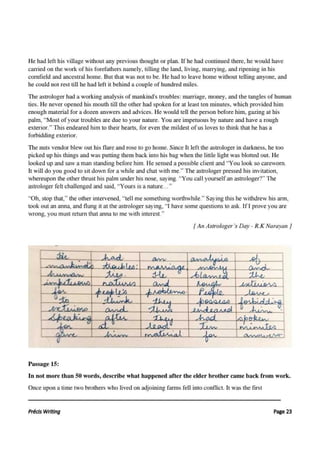 He had left his village without any previous thought or plan. If he had continued there, he would have
carried on the work of his forefathers namely, tilling the land, living, marrying, and ripening in his
cornfield and ancestral home. But that was not to be. He had to leave home without telling anyone, and
he could not rest till he had left it behind a couple of hundred miles.
The astrologer had a working analysis of mankind's troubles: marriage, money, and the tangles of human
ties. He never opened his mouth till the other had spoken for at least ten minutes, which provided him
enough material for a dozen answers and advices. He would tell the person before him, gazing at his
palm, "Most of your troubles are due to your nature. You are impetuous by nature and have a rough
exterior." This endeared him to their hearts, for even the mildest of us loves to think that he has a
forbidding exterior.
The nuts vendor blew out his flare and rose to go home. Since It left the astrologer in darkness, he too
picked up his things and was putting them back into his bag when the little light was blotted out. He
looked up and saw a man standing before him. He sensed a possible client and "You look so careworn.
It will do you good to sit down for a while and chat with me." The astrologer pressed his invitation,
whereupon the other thrust his palm under his nose, saying. "You call yourself an astrologer?" The
astrologer felt challenged and said, "Yours is a nature…"
"Oh, stop that," the other intervened, "tell me something worthwhile." Saying this he withdrew his arm,
took out an anna, and flung it at the astrologer saying, "I have some questions to ask. If I prove you are
wrong, you must return that anna to me with interest."
[ An Astrologer's Day - R.K Narayan ]
He had an analysis of
mankind's troubles: marriage, money and
human ties. He blamed the
impetuous natures and rough exteriors
for people's problems. People love
to think they possess forbidding
exteriors and thus endeared him.
Speaking after they had spoken
for at least ten minutes
gave him material for answers
Passage 15:
In not more than 50 words, describe what happened after the elder brother came back from work.
Once upon a time two brothers who lived on adjoining farms fell into conflict. It was the first
Précis Writing Page 23